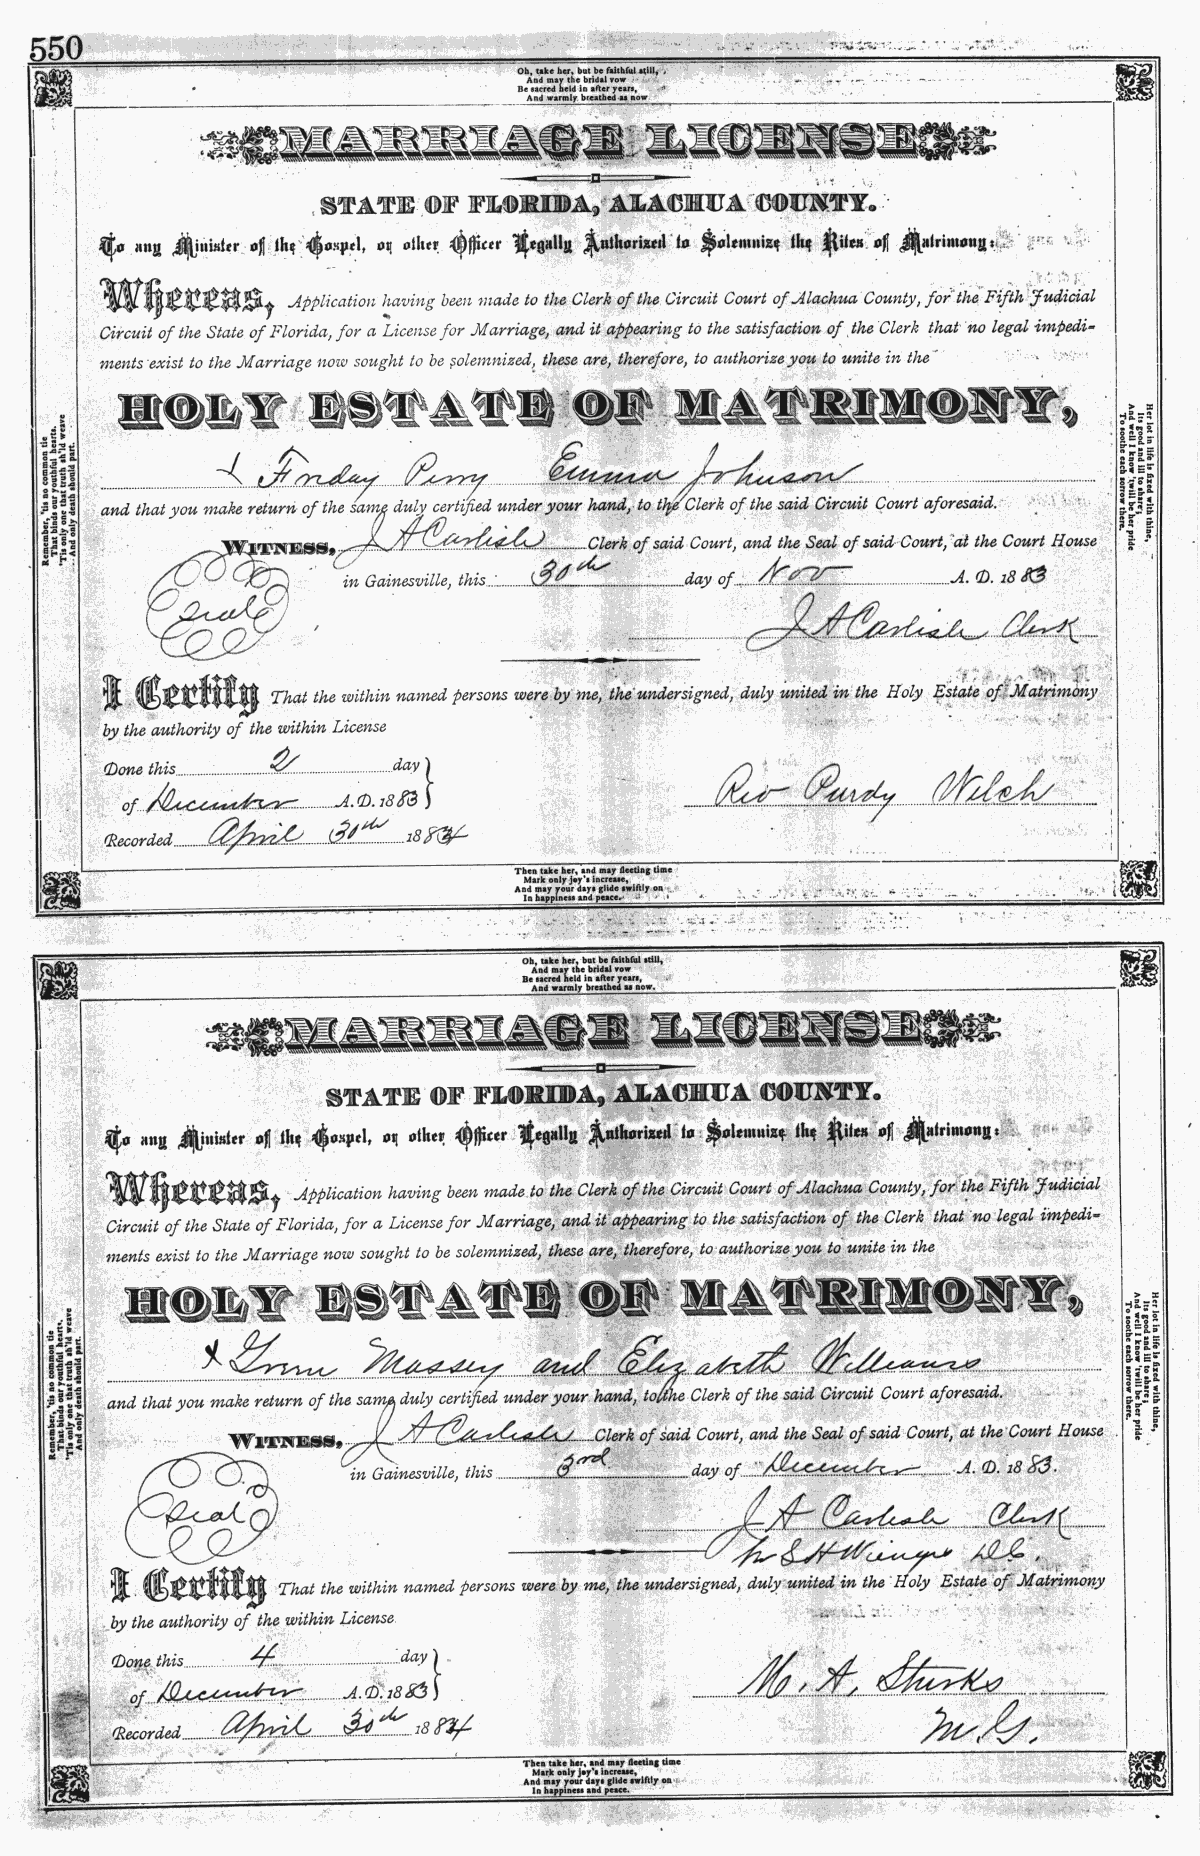 550
Oh, take her, but be faithful still,
And may the bridal vow
Be sacred held in after years,
And warmly breathed as now
MARRIAGE LICENSE
STATE OF FLORIDA, ALACHUA COUNTY.
To any Minister of the Gospel, or other Officer Legally Authorized to Solemnize the Rites of Matrimony:
Whereas, Application having been made to the Clerk of the Circuit Court of Alachua County, for the Fifth Judicial
Circuit of the State of Florida, for a License for Marriage, and it appearing to the satisfaction of the Clerk that no legal impedi-
ments exist to the Marriage now sought to be solemnized, these are, therefore, to authorize you to unite in the
HOLY ESTATE OF MATRIMONY,
Friday Perry Emma Johnson
and that you make return of the same duly certified under your hand, to the Clerk of the said Circuit Court aforesaid.
WITNESS, J A Carlisle Clerk of said Court, and the Seal of said Court, at the Court House
in Gainesville, this 30th day of Nov A. D. 1883
Seal
J A Carlisle Clerk
I Certify That the within named persons were by me, the undersigned, duly united in the Holy Estate of Matrimony
by the authority of the within License
Done this 2 day
of December A. D. 1883
Rev Purdy Welch
Recorded April 30th 1884
Then take her, and may fleeting time
Mark only joy's increase,
And may your days glide swiftly on
In happiness and peace.
Remember, 'tis no common tie
That binds our youthful hearts,
'Tis only one that truth sh'ld weave
And only death should part.
Her lot in life is fixed with thine,
Its good and ill to share;
And well I know 'twill be her pride
To soothe each sorrow there.
Oh, take her, but be faithful still,
And may the bridal vow
Be sacred held in after years,
And warmly breathed as now.
MARRIAGE LICENSE
STATE OF FLORIDA, ALACHUA COUNTY.
To any Minister of the Gospel, or other Officer Legally Authorized to Solemnize the Rites of Matrimony:
Whereas, Application having been made to the Clerk of the Circuit Court of Alachua County, for the Fifth Judicial
Circuit of the State of Florida, for a License for Marriage, and it appearing to the satisfaction of the Clerk that no legal impedi-
ments exist to the Marriage now sought to be solemnized, these are, therefore, to authorize you to unite in the
HOLY ESTATE OF MATRIMONY,
Massey and Elizabeth Williams
and that you make return of the same duly certified under your hand, to the Clerk of the said Circuit Court aforesaid.
WITNESS, J A Carlisle Clerk of said Court, and the Seal of said Court, at the Court House
in Gainesville, this 3rd day of December A. D. 1883.
Seal
J A Carlisle Clerk
S H D.C.
I Certify That the within named persons were by me, the undersigned, duly united in the Holy Estate of Matrimony
by the authority of the within License
Done this 4 day
of December A. D. 1883
M. A. Sturks
M. G.
Recorded April 30th 1884
Then take her, and may fleeting time
Mark only joy's increase,
And may your days glide swiftly on
In happiness and peace.
Remember, 'tis no common tie
That binds our youthful hearts,
'Tis only one that truth sh'ld weave
And only death should part.
Her lot in life is fixed with thine,
Its good and ill to share;
And well I know 'twill be her pride
To soothe each sorrow there.